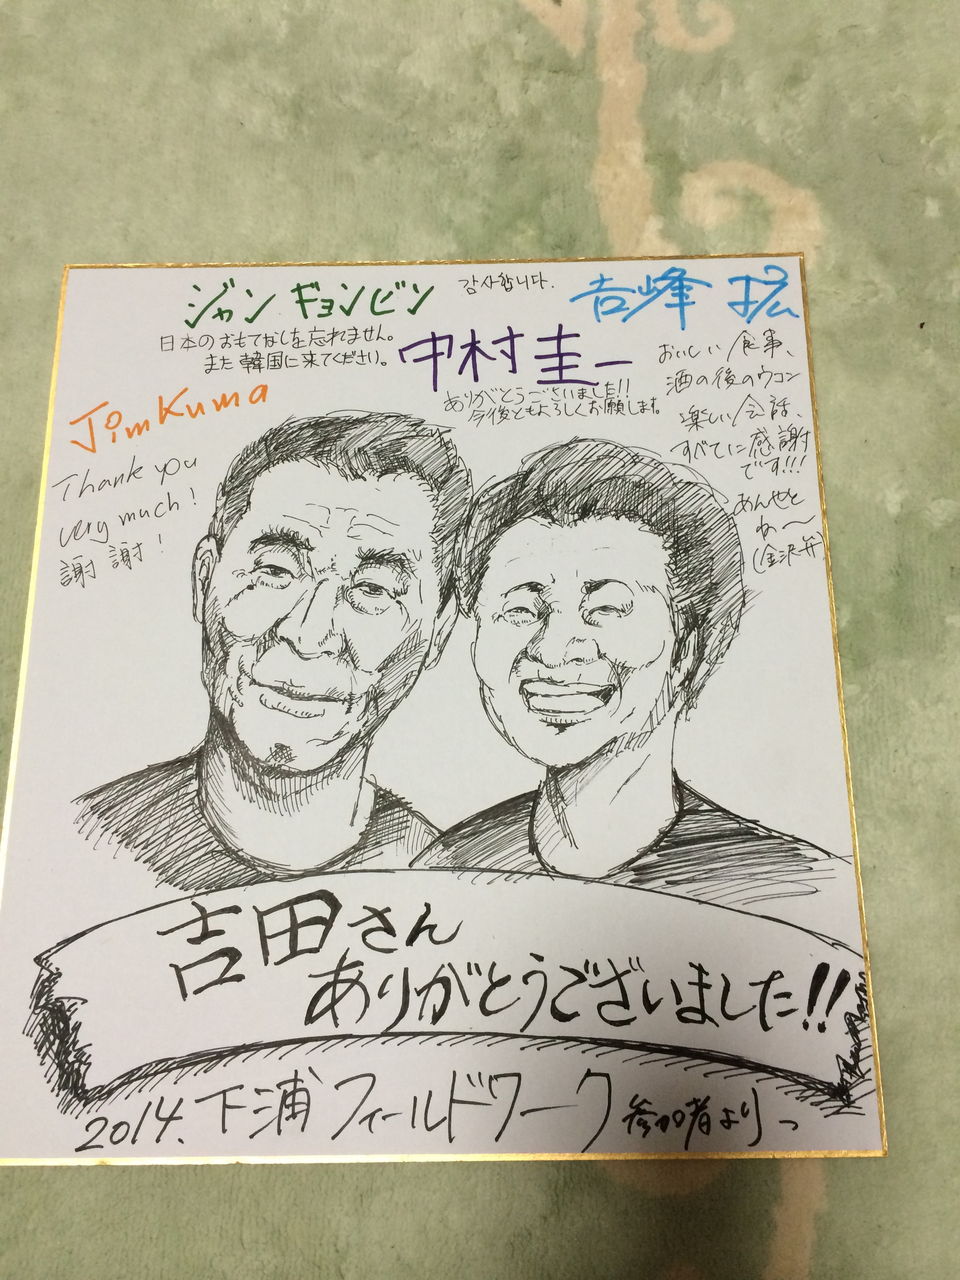 ジャン ギョンビン
감사합니다.
日本のおもてなしを忘れません。
また韓国に来てください。
吉峰 拡
おいしい食事、
酒の後のウコン
楽しい会話、
すべてに感謝
です!!!
あんやと
ね〜
(金沢弁)
中村圭一
ありがとうございました!!
今後ともよろしくお願します。
Jim Kuma
Thank you
very much!
謝謝!
吉田さん
ありがとうございました!!
2014.下浦フィールドワーク参加者より